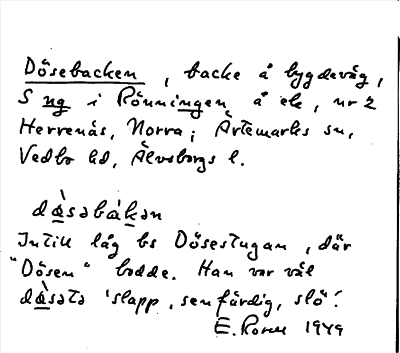 Dösebacken, backe å bygdeväg,
S ng i Rönningen å ek, nr 2
Herrenäs, Norra; Ärtemarks sn,
Vedbo hd, Älvsborgs l.
dɵ̀səbákən
Intill låg bs Dösestugan, där
"Dösen" bodde. Han var väl
dɵ̀sətə 'slapp, senfärdig, slö'.
E. Rosell 1949